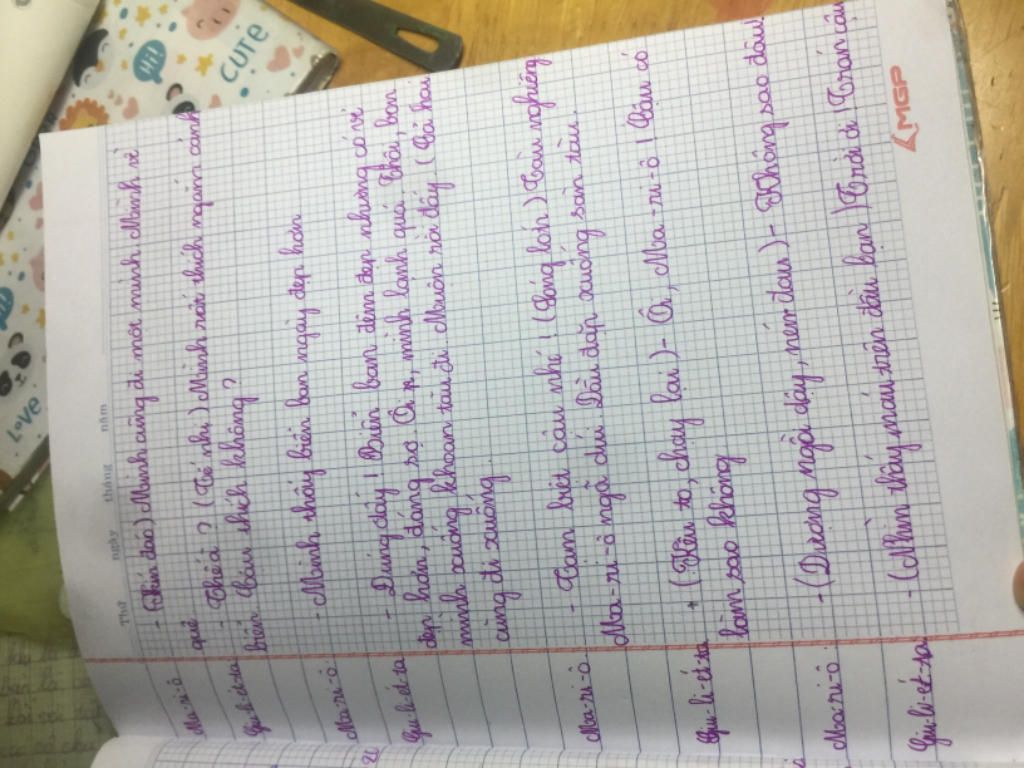 Thứ ngày tháng năm
Ma-ri-ô - (Kín đáo) Mình cũng đi một mình. Mình về
quê
Giu-li-ét-ta - Thế à? (Tế nhị) Mình rất thích ngắm cảnh
biển. Cậu thích không?
Ma-ri-ô - Mình thấy biển ban ngày đẹp hơn
Giu-li-ét-ta - Đúng đấy! Biển ban đêm đẹp nhưng có vẻ
đẹp hơn, đáng sợ. Ôi, mình lạnh quá. Thôi, bọn
mình xuống khoan tàu đi. Muộn rồi đấy. (Cả hai
cùng đi xuống
Ma-ri-ô - Tạm biệt cậu nhé! (Sóng lớn) Tàu nghiêng
Ma-ri-ô ngã dúi. Đầu đập xuống sàn tàu.
Giu-li-ét-ta + (Kêu to, chạy lại) - Ôi, Ma-ri-ô! Cậu có
làm sao không
Ma-ri-ô - (Dượng ngồi dậy, nén đau) - Không sao đâu!
Giu-li-ét-ta - (Nhìn thấy máu trên đầu bạn) Trời ơi! Trán cậu
MGP
Hi!
CUTE
LOVE